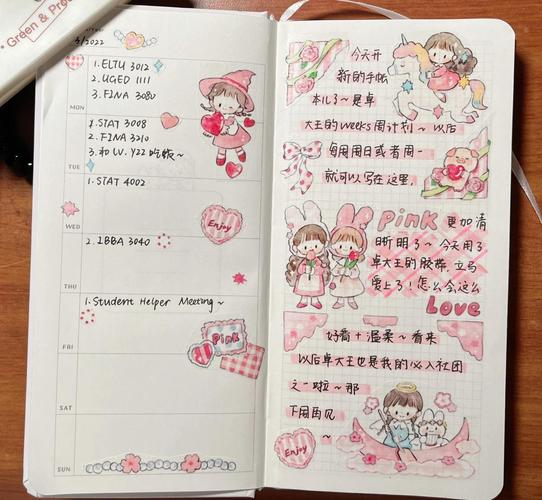 Green & Pro
/2022
1. ELTU 3012
2. UGED 1111
3. FINA 3080
MON
1. STAT 3008
2. FINA 3210
3. 和 LV. Y22 吃饭~
TUE
1. STAT 4002
WED
Enjoy
2. IBBA 3040
THU
1. Student Helper Meeting ~
FRI
Pink
SAT
SUN
今天开
新的手帐
本儿了~是卓
大王的weeks周计划~以后
每周周日或者周一
就可以写在这里,
Pink 更加清
晰明了~今天用了
卓大王的胶带,立马
爱上了!怎么会这么
Love
好看+温柔~看来
以后卓大王也是我的必入社团
之一啦~那
下周再见
~
Enjoy